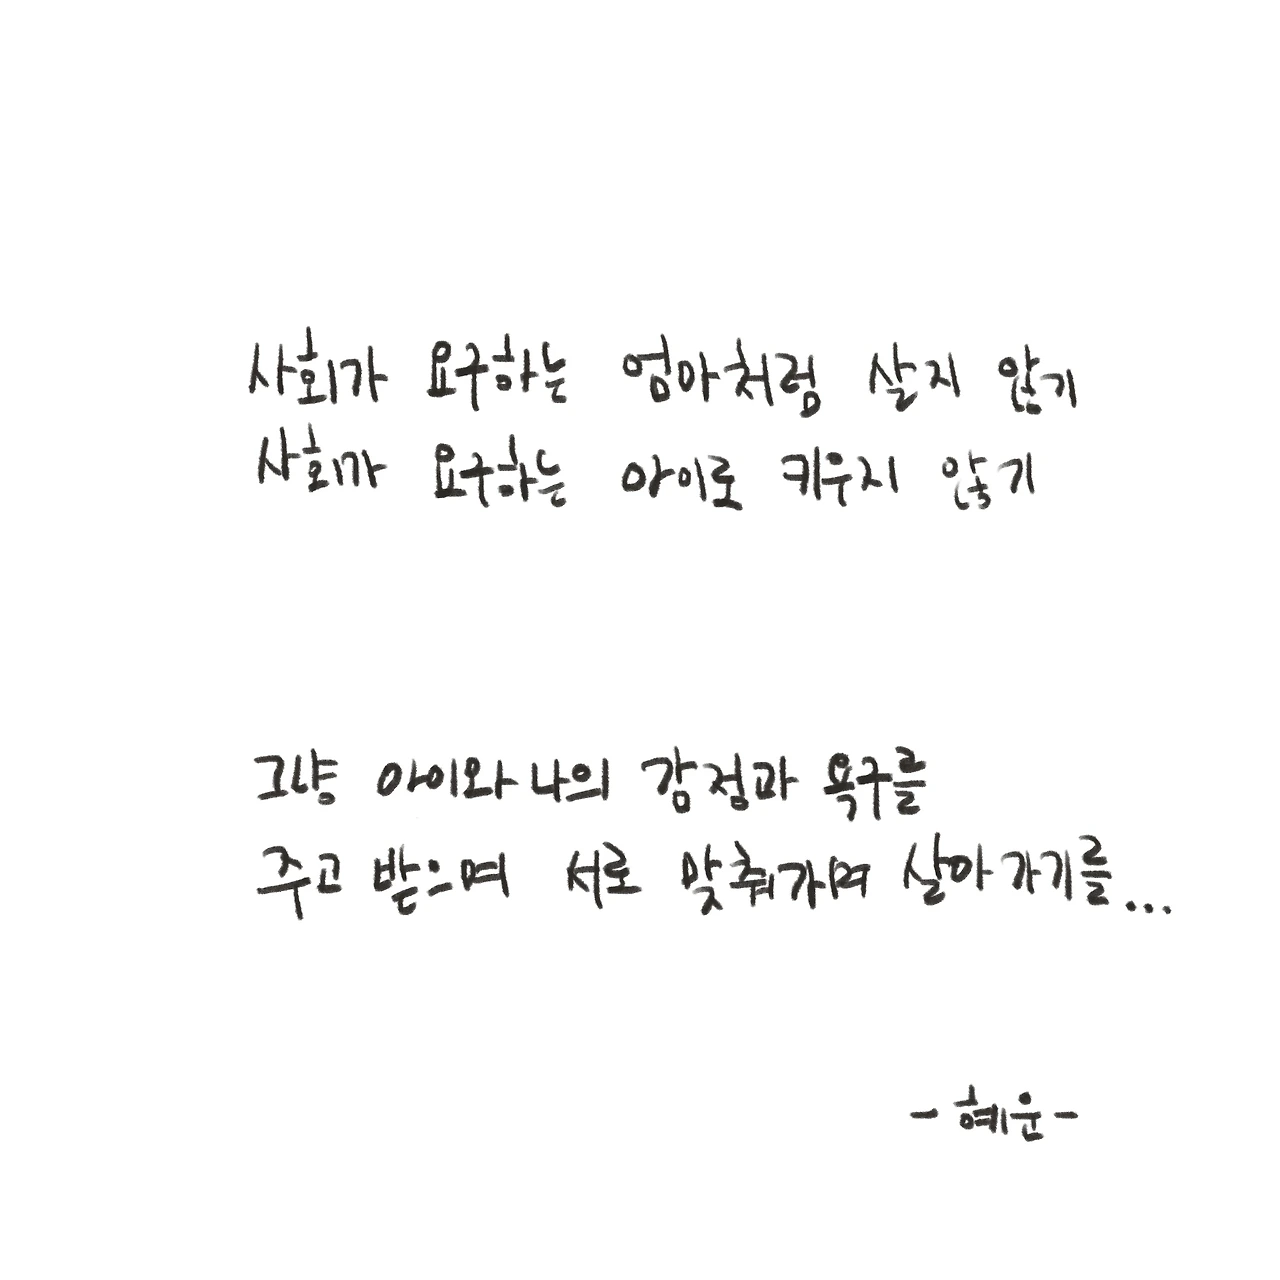 사회가 요구하는 엄마처럼 살지 않기
사회가 요구하는 아이로 키우지 않기
그냥 아이와 나의 감정과 욕구를
주고 받으며 서로 맞춰가며 살아가기를...
- 혜운 -